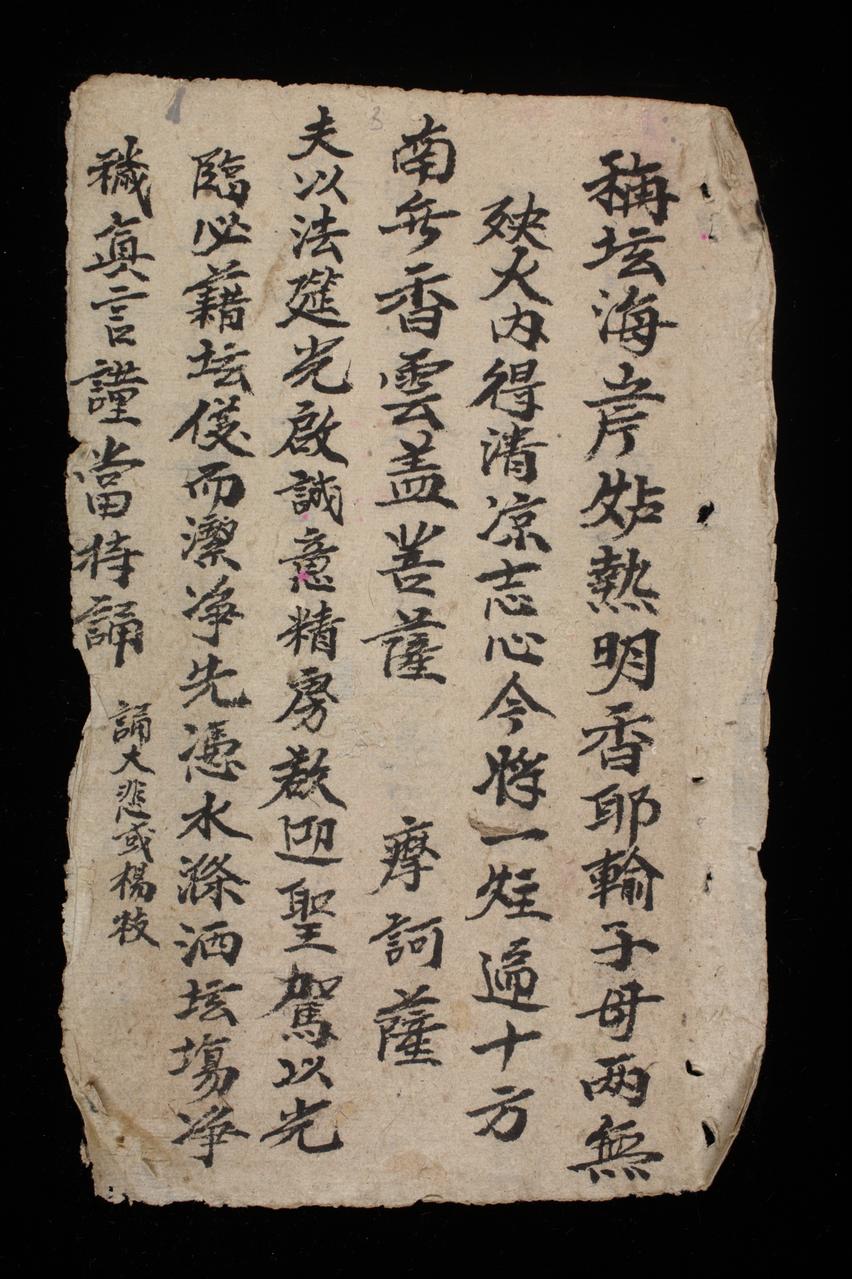 稱坛海岸㸃熱明香耶輸子母两無
殃火内得清凉志心今將一炷遍十方
南无香雲盖菩薩 摩訶薩
夫以法筵光啟誠意精虔欲迎聖駕以光
臨必藉坛儀而潔净先憑水滌洒坛塲净
穢真言謹當持誦 誦大悲或楊枝